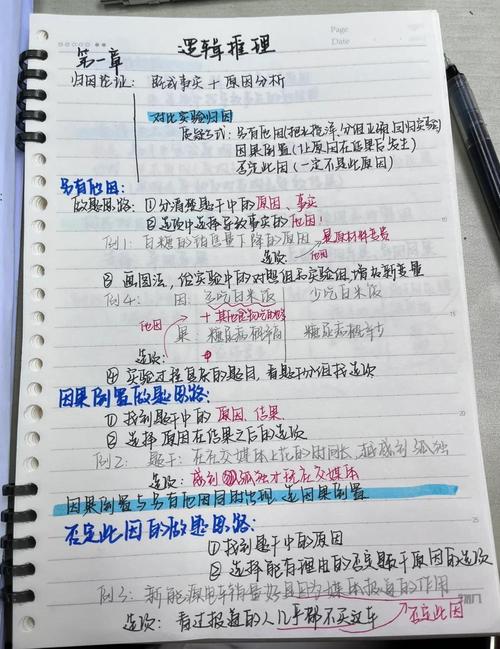 Page
Date
逻辑推理
第一章
归因论证: 既成事实 + 原因分析
对比实验归因
质疑方式: 另有他因(把水搅浑,分组业须回归实验)
因果倒置(让原因在结果后发生)
否定此因(一定不是此原因)
另有他因:
做题思路: ①分清楚题干中的原因、事实
②选项中选择导致事实的他因!
例1: 白糖的销售量下降的原因 是原材料变贵
选项: 他因
③ 画图法, 给实验中的对照组和实验组, 增加新变量
例4: 因: 多吃白米饭 少吃白米饭
他因 + 其他食物吃的多
果: 糖尿病概率高 糖尿病概率少
选项:
④ 实验过程复杂的题目, 看题干分组找选项
因果倒置做题思路:
① 找到题干中的 原因、结果
② 选择 原因在结果之后的选项
例2: 题干: 在社交媒体上花的时间长, 越感到孤独
选项: 感到孤独才玩社交媒体
因果倒置与另有他因同时出现, 选因果倒置
否定此因的做题思路:
① 找到题干中的原因
② 选择 能有理由的否定题干原因的选项
例3: 新能源电车销量好是因为媒体报道的作用
选项: 看过报道的人几乎都不买这车 否定此因